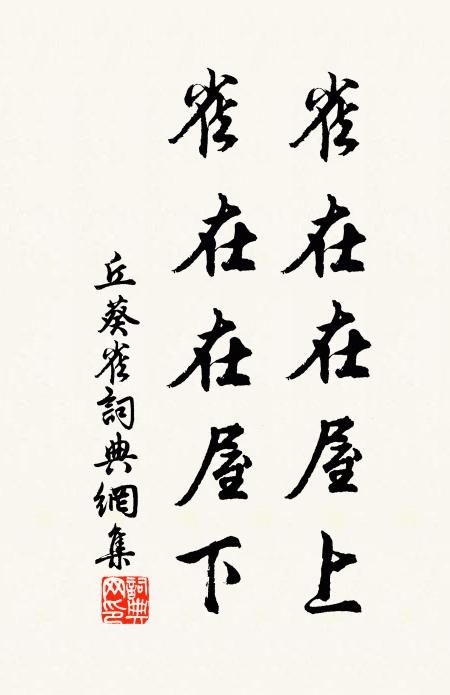 雀在在屋上
雀在在屋下
丘葵雀詞典網集
詞典网印